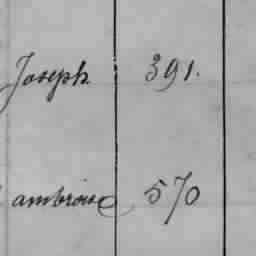 Joseph 391.
ambroise 570